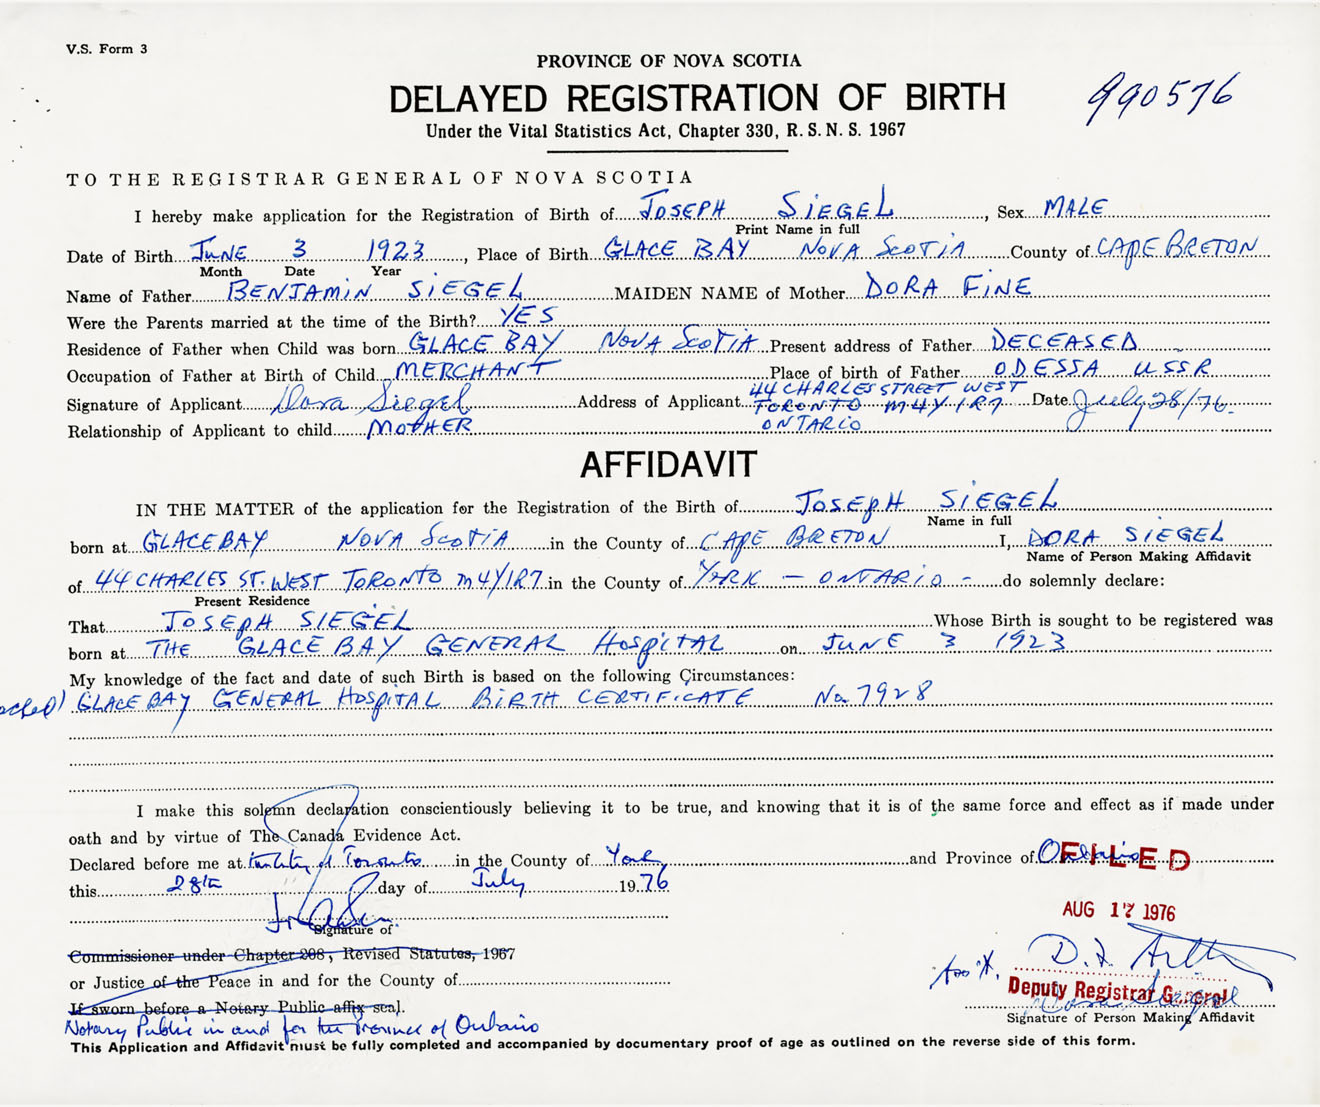 V.S. Form 3
PROVINCE OF NOVA SCOTIA
DELAYED REGISTRATION OF BIRTH
990576
Under the Vital Statistics Act, Chapter 330, R. S. N. S. 1967
TO THE REGISTRAR GENERAL OF NOVA SCOTIA
I hereby make application for the Registration of Birth of JOSEPH SIEGEL, Sex MALE
Print Name in full
Date of Birth JUNE 3 1923, Place of Birth GLACE BAY NOVA SCOTIA County of CAPE BRETON
Month Date Year
Name of Father BENJAMIN SIEGEL MAIDEN NAME of Mother DORA FINE
Were the Parents married at the time of the Birth? YES
Residence of Father when Child was born GLACE BAY NOVA SCOTIA Present address of Father DECEASED
Occupation of Father at Birth of Child MERCHANT Place of birth of Father ODESSA USSR
44 CHARLES STREET WEST
Signature of Applicant Dora Siegel Address of Applicant TORONTO M4Y1R7 Date July 28/76.
Relationship of Applicant to child MOTHER ONTARIO
AFFIDAVIT
IN THE MATTER of the application for the Registration of the Birth of JOSEPH SIEGEL
Name in full
born at GLACE BAY NOVA SCOTIA in the County of CAPE BRETON I, DORA SIEGEL
Name of Person Making Affidavit
of 44 CHARLES ST. WEST TORONTO M4Y1R7 in the County of YORK - ONTARIO - do solemnly declare:
Present Residence
That JOSEPH SIEGEL Whose Birth is sought to be registered was
born at THE GLACE BAY GENERAL HOSPITAL on JUNE 3 1923
My knowledge of the fact and date of such Birth is based on the following Circumstances:
GLACE BAY GENERAL HOSPITAL BIRTH CERTIFICATE No. 7928
I make this solemn declaration conscientiously believing it to be true, and knowing that it is of the same force and effect as if made under
oath and by virtue of The Canada Evidence Act.
Declared before me at the City of Toronto in the County of York, and Province of Ontario
FILED
this 28th day of July 1976
AUG 17 1976
Signature of
Commissioner under Chapter 208, Revised Statutes, 1967
or Justice of the Peace in and for the County of
Deputy Registrar General
If sworn before a Notary Public affix seal.
Dora Siegel
Signature of Person Making Affidavit
Notary Public in and for the Province of Ontario
This Application and Affidavit must be fully completed and accompanied by documentary proof of age as outlined on the reverse side of this form.